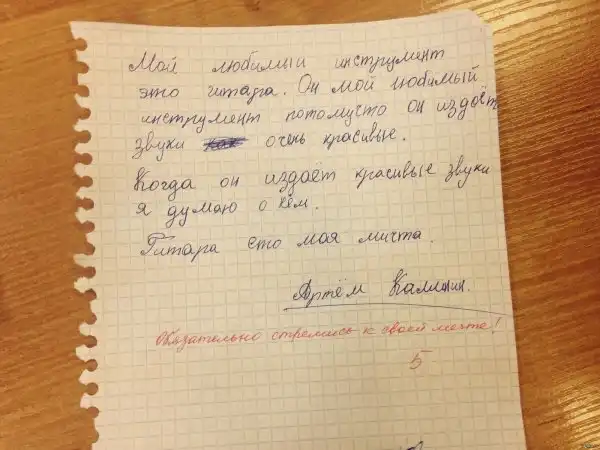 Мой любимый инструмент
это гитара. Он мой любимый
инструмент потомучто он издоёт
звуки очень красивые.
Когда он издоёт красивые звуки
я думаю о нём.
Гитара ето моя мичта.
Артём Каллинин.
Обязательно стремись к своей мечте!
5